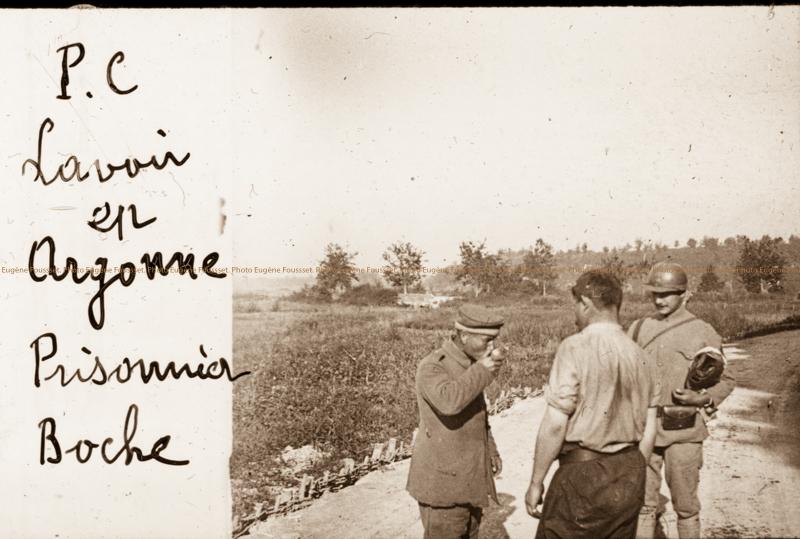 P.C
Lavoir
en
Argonne
Prisonnier
Boche
Eugène Foussset. Photo Eugène Foussset. Photo Eugène Foussset. Photo Eugène Foussset. Photo Eugène Foussset. Photo Eugène Foussset.